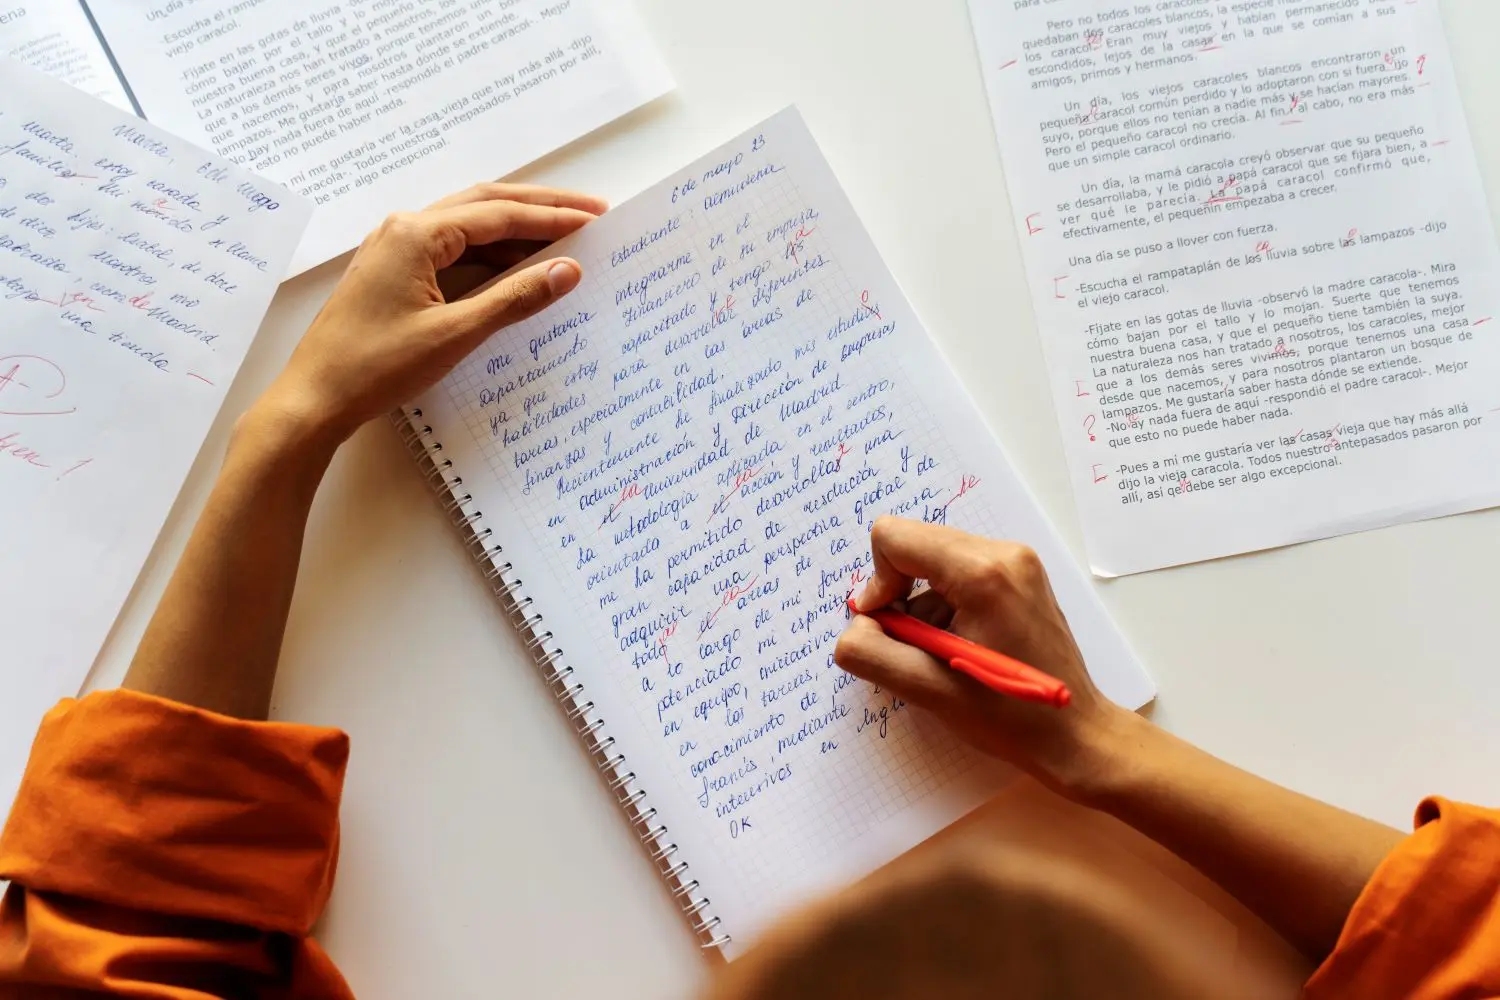 Un día se
-Escucha el rampa
viejo caracol.
-Fíjate en las gotas de lluvia
cómo bajan por el tallo y lo moj
nuestra buena casa, y que el pequeño
La naturaleza nos han tratado a nosotros, los
que a los demás seres vivos, porque tenemos una
que nacemos, y para nosotros plantaron un bos
lampazos. Me gustaría saber hasta dónde se extiende.
-No hay nada fuera de aquí -respondió el padre caracol-. Mejor
esto no puede haber nada.
a mí me gustaría ver la casa vieja que hay más allá -dijo
caracola-. Todos nuestros antepasados pasaron por allí,
be ser algo excepcional.
Marta, 6 de mayo
Marta. estoy casada y
familia. Mi marido a
se llame
do hijos: Isabel, de doce
de dice
mi
cerca de Madrid.
en
una tienda
A-
6 de mayo 23
Estudiante: Almudena
Me gustaría integrarme en el
Departamento Financiero de su empresa
ya que estoy capacitado y tengo las a
habilidades para desarrollar diferentes
tareas, especialmente en las áreas de
finanzas y contabilidad.
Recientemente he finalizado mis estudios o
en administración y Dirección de empresas
en el la Universidad de Madrid.
La metodología aplicada en el centro,
orientada a el la acción y resultados,
me ha permitido desarrollar una
gran capacidad de resolución y
adquirir una perspectiva global de
todo el la areas de la empresa.
a lo largo de mi formac
potenciado mi espíritu
en equipo, iniciativa
en las tareas,
conocimiento de idi
francés, mediante
intensivos en Ingl
OK
Pero no todos los caracoles
quedaban dos caracoles blancos, la especie más
los caracol. Eran muy viejos y habían permanecido
escondidos, lejos de la casa en la que se comían a sus
amigos, primos y hermanos.
Un día, los viejos caracoles blancos encontraron un
pequeña caracol común perdido y lo adoptaron con si fuera ijo ?
suyo, porque ellos no tenían a nadie más y se hacían mayores.
Pero el pequeño caracol no crecía. Al fin y al cabo, no era más
que un simple caracol ordinario.
Un día, la mamá caracola creyó observar que su pequeño
se desarrollaba, y le pidió a papá caracol que se fijara bien, a
ver qué le parecía. La papá caracol confirmó que,
efectivamente, el pequeñín empezaba a crecer.
Una día se puso a llover con fuerza.
-Escucha el rampataplán de los lluvia sobre las lampazos -dijo
el viejo caracol.
-Fíjate en las gotas de lluvia -observó la madre caracola-. Mira
cómo bajan por el tallo y lo mojan. Suerte que tenemos
nuestra buena casa, y que el pequeño tiene también la suya.
La naturaleza nos han tratado a nosotros, los caracoles, mejor
que a los demás seres vivimos, porque tenemos una casa
desde que nacemos, y para nosotros plantaron un bosque de
lampazos. Me gustaría saber hasta dónde se extiende.
-No ay nada fuera de aquí -respondió el padre caracol-. Mejor
que esto no puede haber nada.
-Pues a mí me gustaría ver las casas vieja que hay más allá
dijo la vieja caracola. Todos nuestro antepasados pasaron por
allí, así qe debe ser algo excepcional.